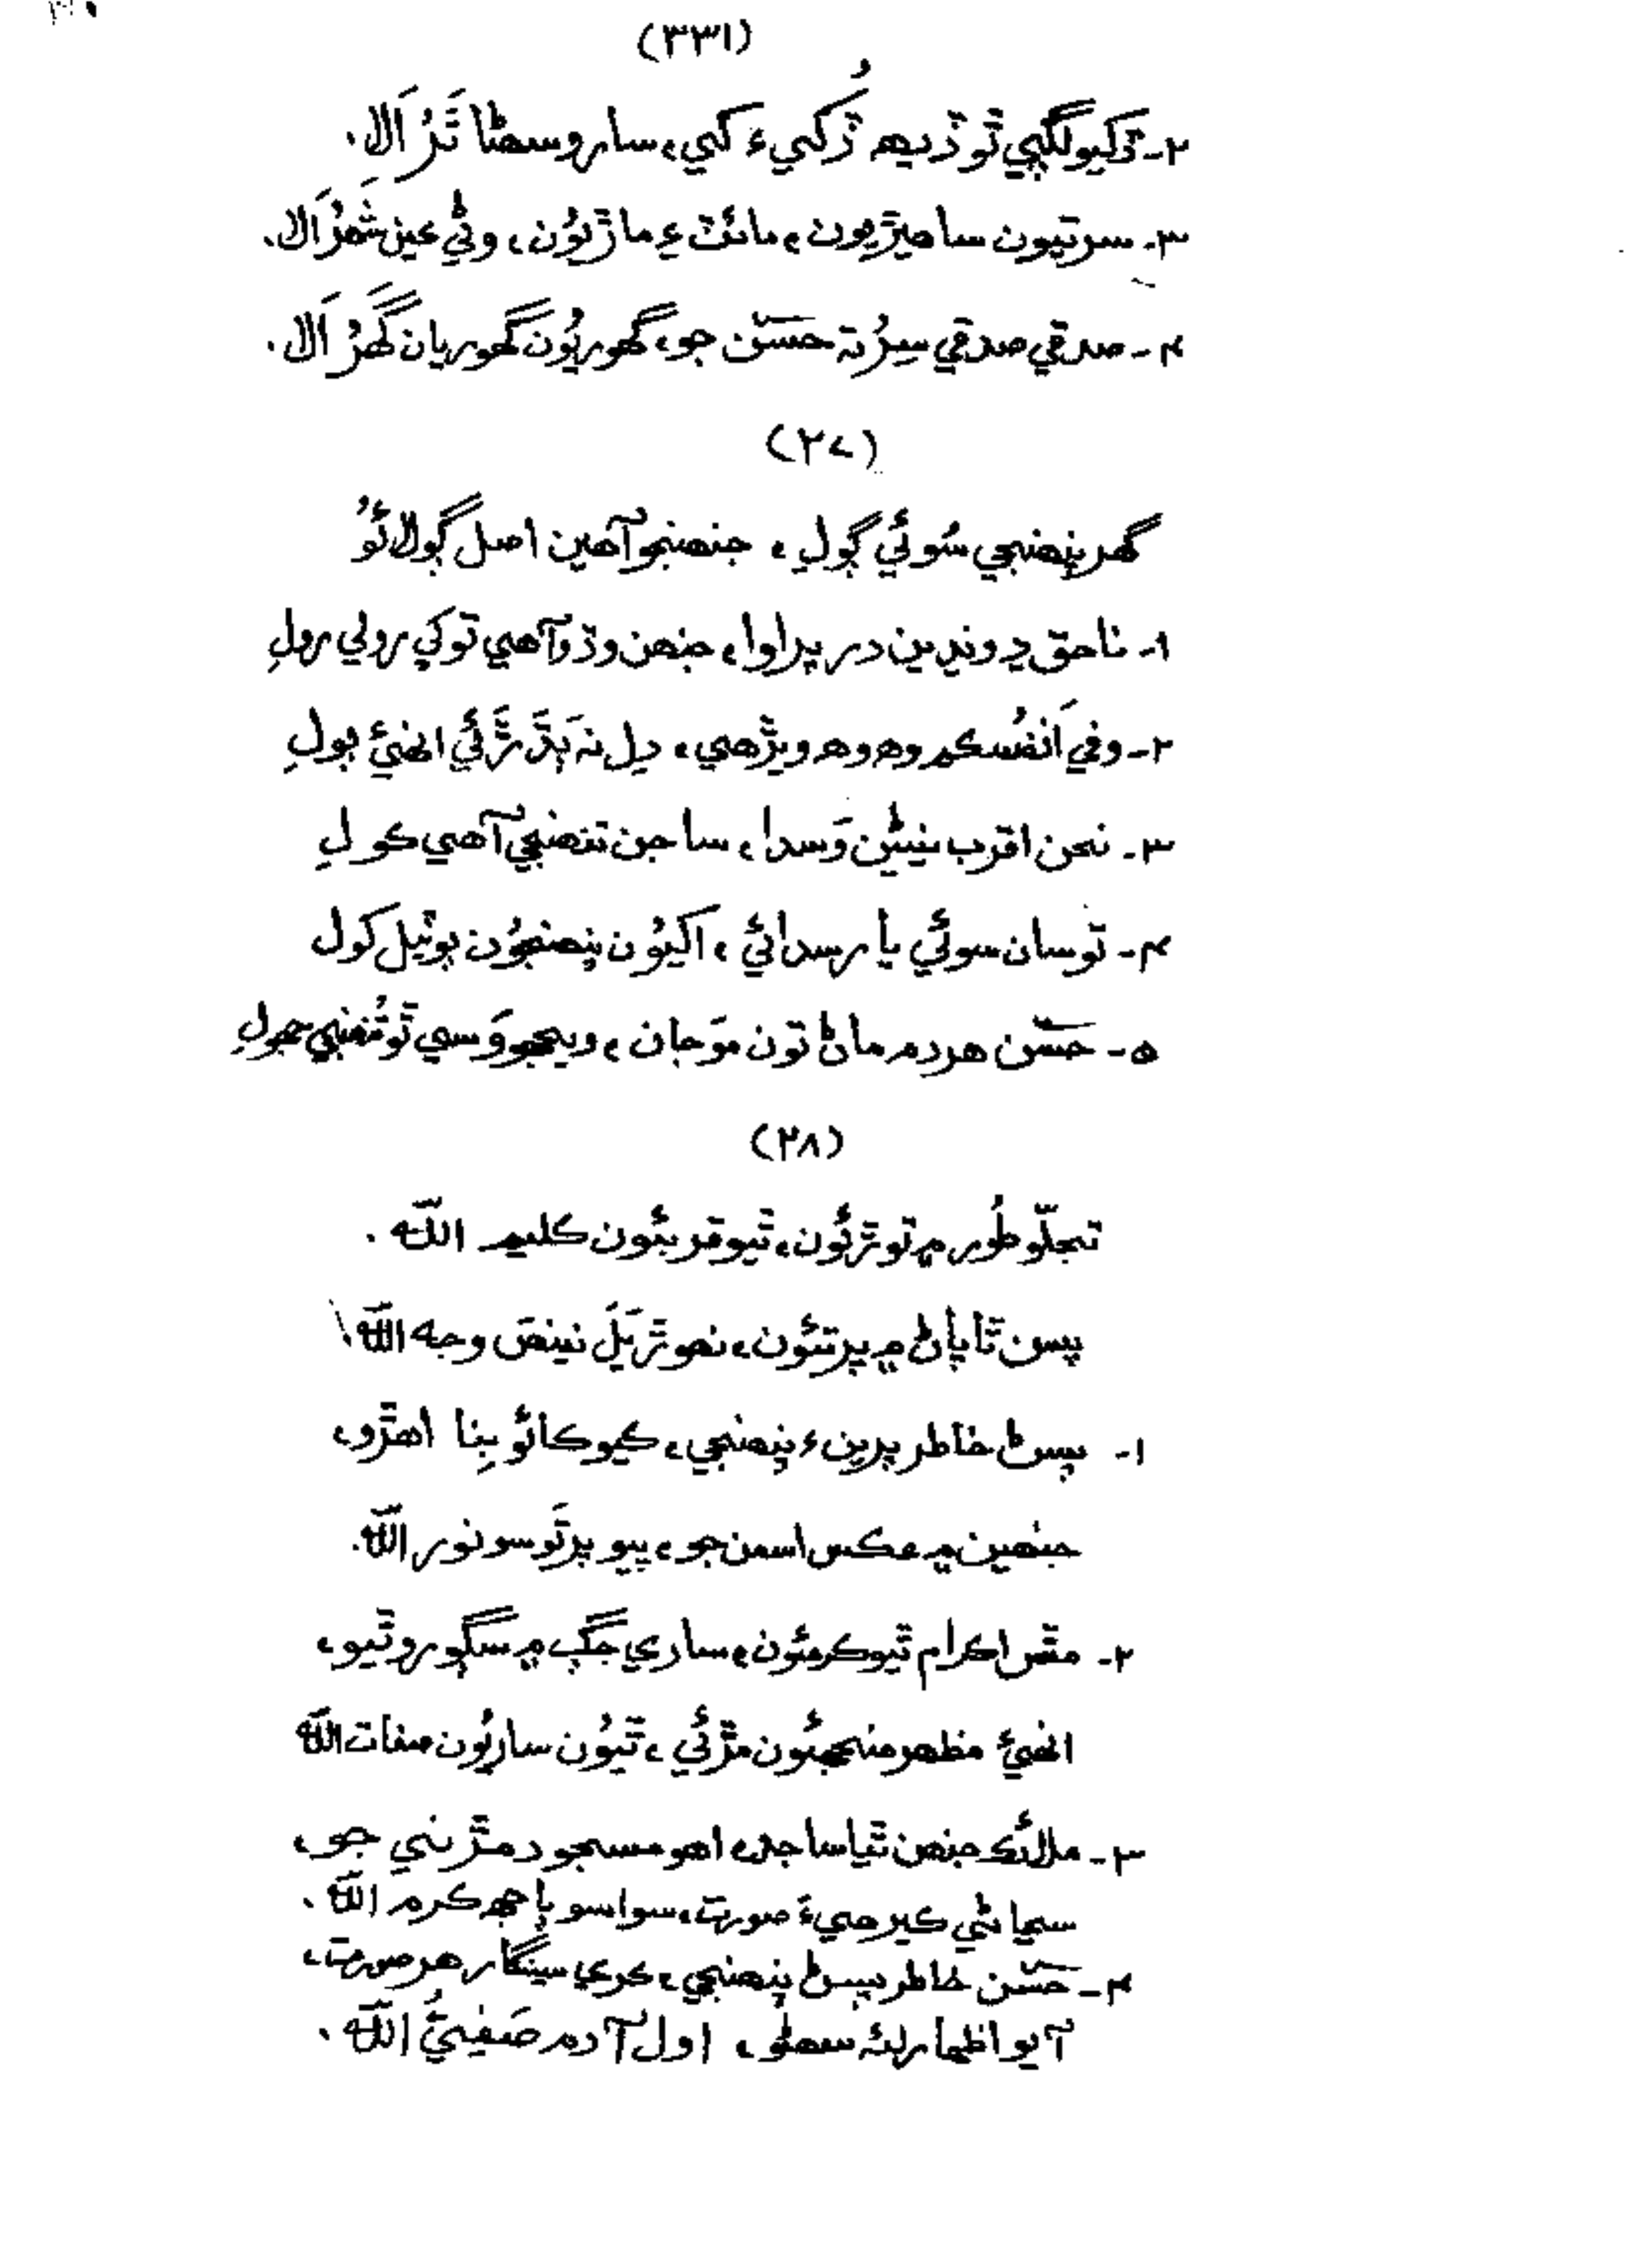 (٣٣١)
٢ـ ڏکيو لڳي ٿو ڏيهه ڏُکيءَ کي، سارو سهڻا تَڙُ اَلا.
٣ـ سرتيون ساهيڙيون، مائٽ ۽ ماڙيون، وڻي عين شَهرُ اَلا.
۴ـ صدقي صدقي سِرُ تہ حسن جو، گهوريُون گهوريان گَهرُ اَلا.
(٢٧)
گهر پنهنجي سُوئي ڳولِ، جنهنجو آهين اصل ڳولائُو
١ـ ناحق ڊوندين در پراوا، جنهن وڌو آهي توکي رولي رولِ
٢ـ وفي اَنفُسکم وهه وهه ويڙهي، دِل نہ انهيءَ ٻولِ
٣ـ نحن اقرب نيڻين وَسدا، ساجن تنهنجي آهي کولِ
۴ـ توسان سوئي يار سدائي، اکيُون پنهنجُون ٻوٽيل کول
٥ـ حسن هردم ماڻ تون مَوجان، ويجهو وَسي ٿو تُنهنجي جهولِ
(٢٨)
تجلّو طُور ۾ تو ٿيو قربئون ڪليم اللّٰه.
پسن ٿا پاڻ ۾ پرتئون، نينهن وجه اللّٰه.
١ـ پسڻ خاطر پرينءَ پنهنجي، ڪيو ڪائو بِنا اهڙو،
جنهين ۾ عڪس اسمن جو، پيو پرتَو سو نور اللّٰه.
٢ـ مٿس اڪرام ٿيو ڪرمئون، ساري جڳ ۾ سڳورو ٿيو،
انهيءَ مظهر منجهئُون مڙئي، ٿيُون ساريُون صفات اللّٰه
٣ـ ملائڪ جنهن ٿيا ساجد، اهو مسجود مڙني جو،
سڃاڻي ڪير هيءَ صورت، سواسو ٻاجهه ڪرم اللّٰه.
۴ـ حسن خاطر پسڻ پنهنجي، ڪري سينگار هر صورت،
آيو اظهار لئہ سهڻو، اول آدم صَفِيُّ اللّٰه.